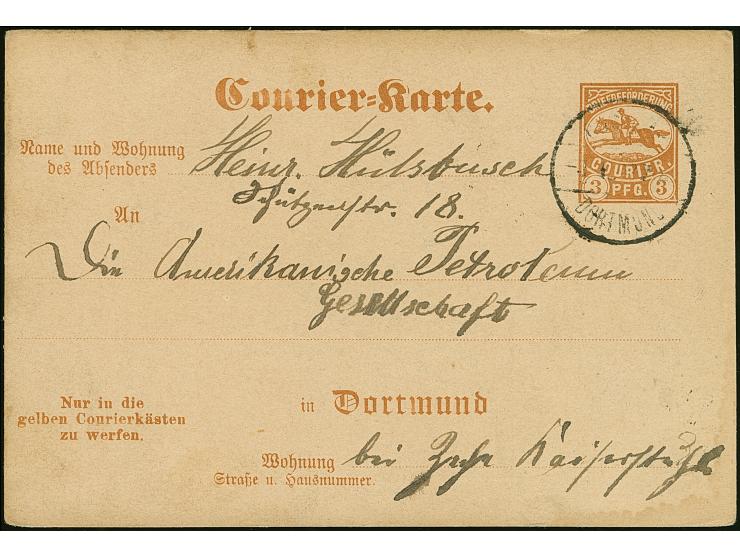 Courier-Karte.
BRIEFBEFÖRDERUNG
COURIER.
3 PFG. 3
DORTMUND
Name und Wohnung
des Absenders
Heinr. Hülsbusch
Schützenstr. 18.
An
Die Amerikanische Petroleum
Gesellschaft
Nur in die
gelben Courierkästen
zu werfen.
in Dortmund
Wohnung bei Zeche Kaiserstuhl
Straße u. Hausnummer.